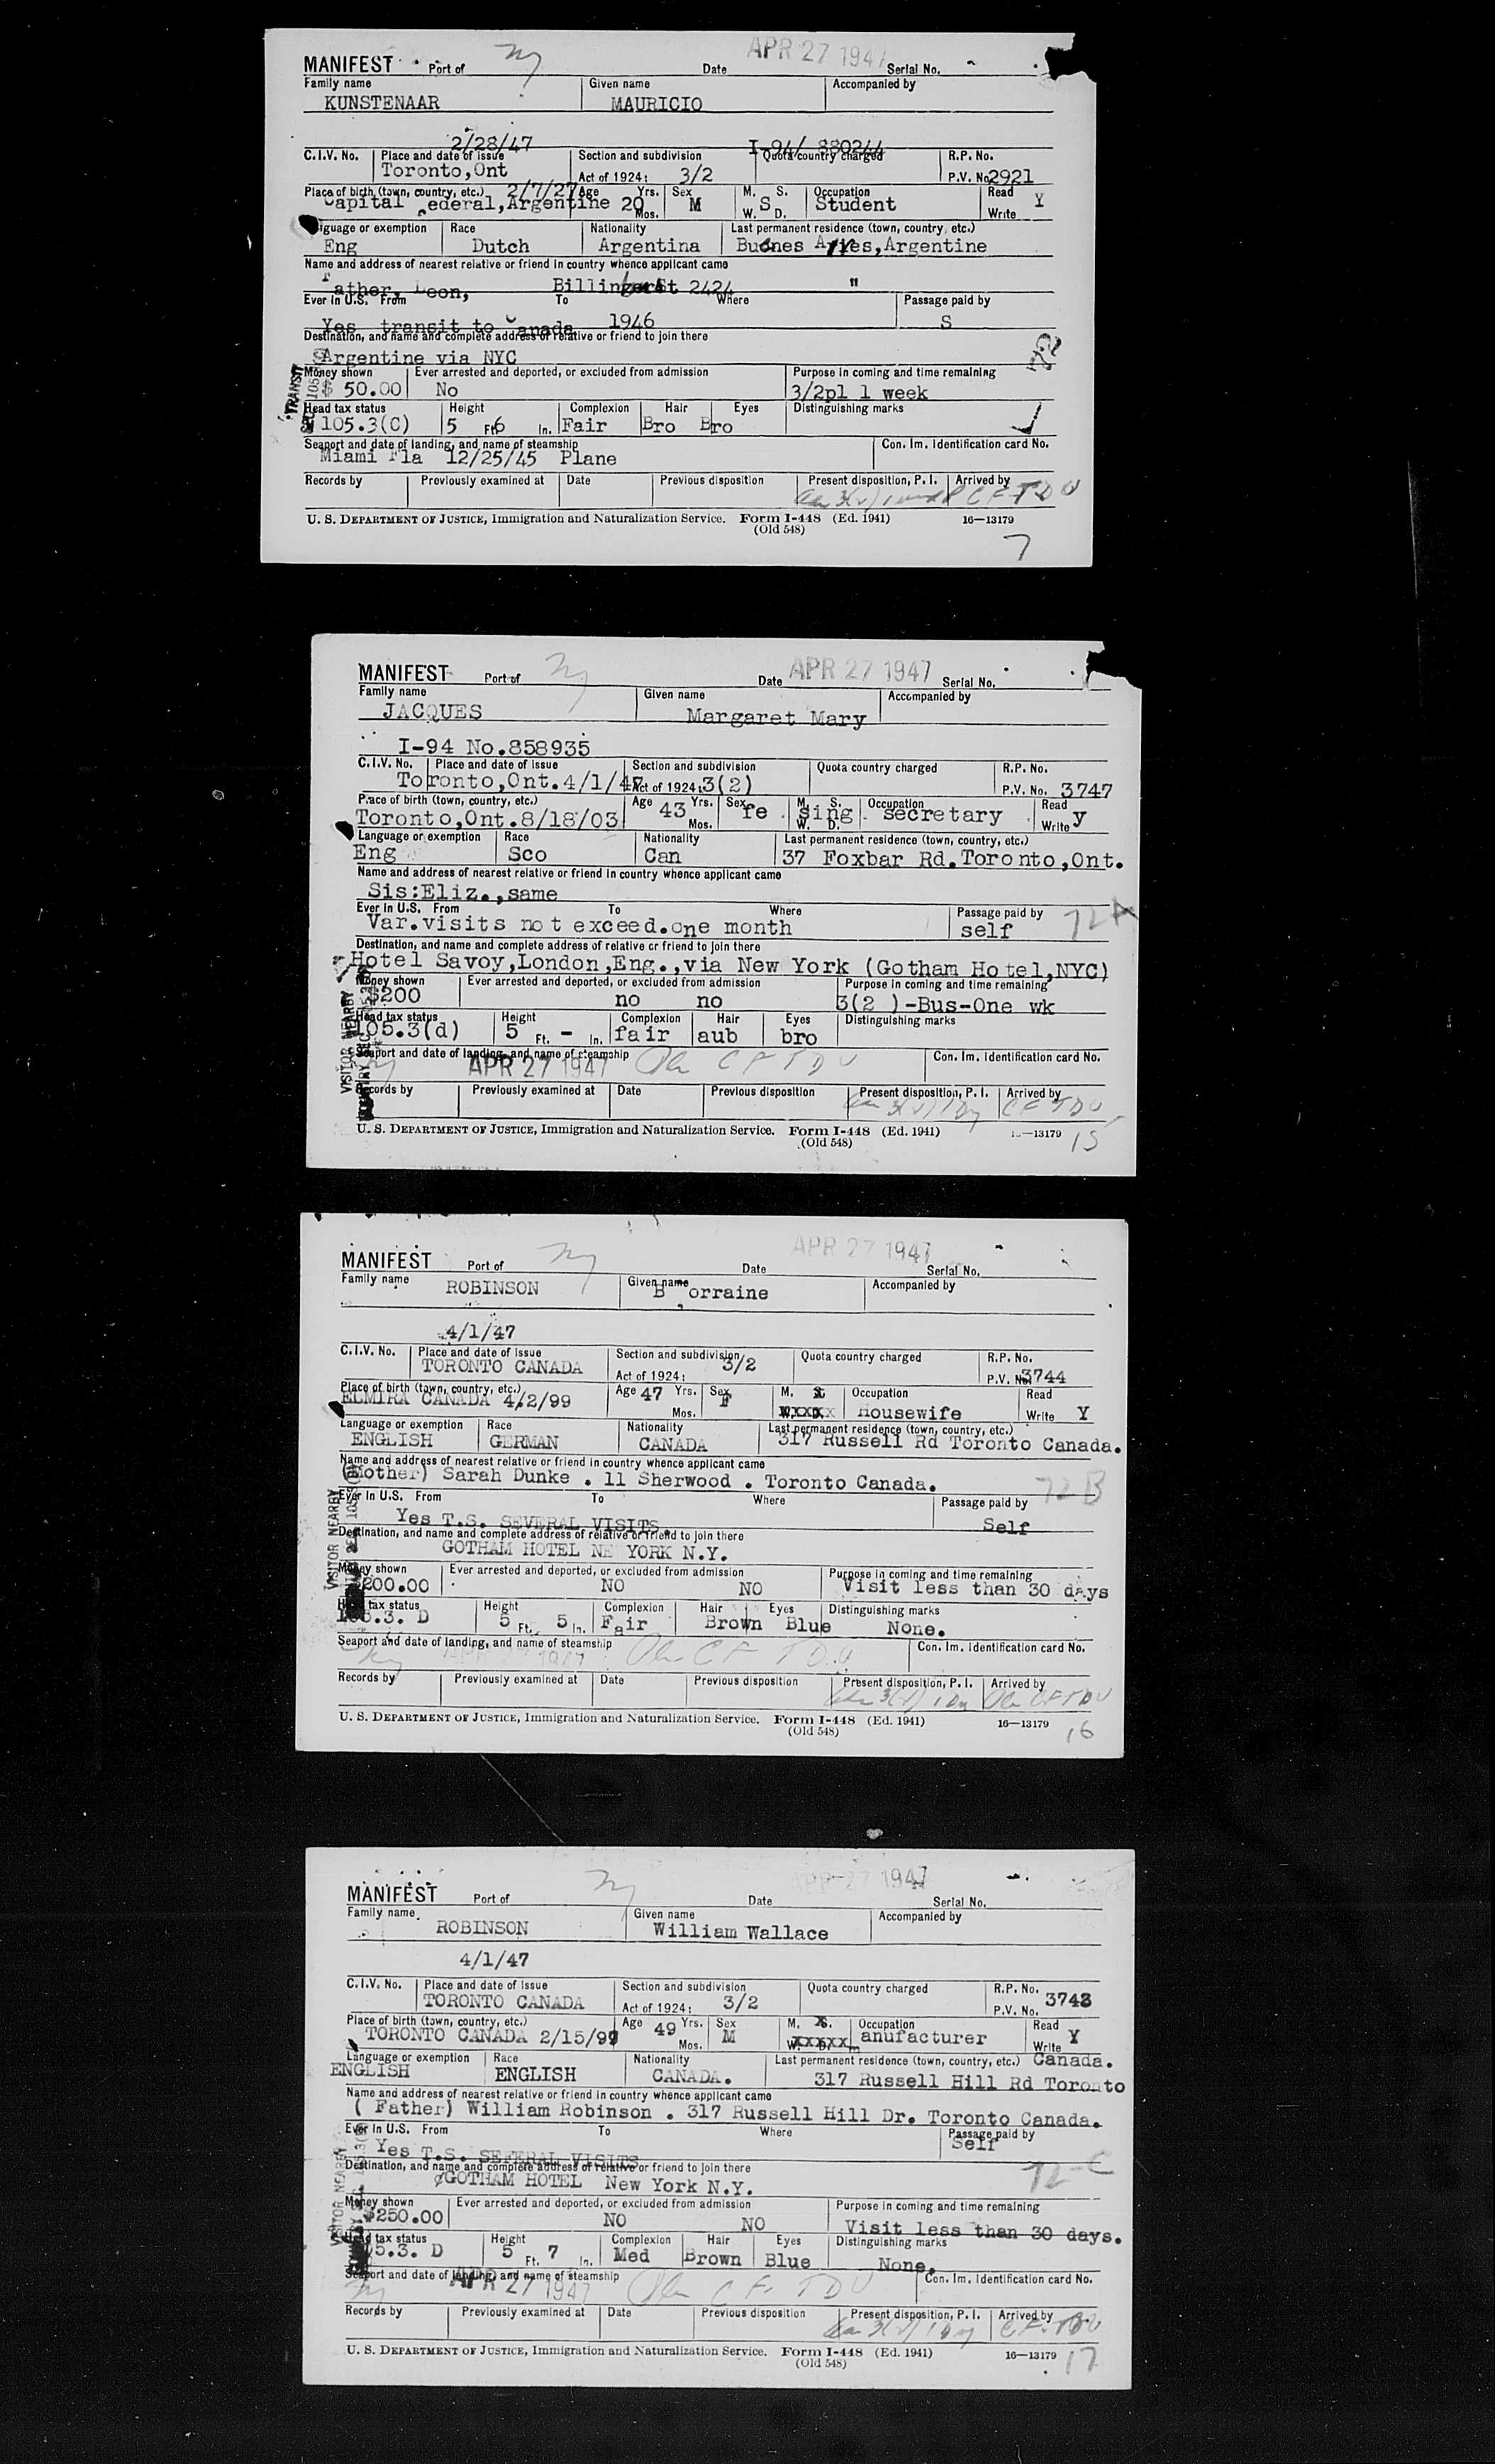 APR 27 1947
MANIFEST Port of NY Date Serial No.
Family name Given name Accompanied by
KUNSTENAAR MAURICIO
2/28/47 I-94/ 880244
C.I.V. No. Place and date of issue Section and subdivision Quota country charged R.P. No.
Toronto,Ont Act of 1924: 3/2 P.V. No. 2921
Place of birth (town, country, etc.) 2/7/27 Age Yrs. Sex M. S. Occupation Read
Capital Federal,Argentine 20 Mos. M W. S D. Student Write Y
Language or exemption Race Nationality Last permanent residence (town, country, etc.)
Eng Dutch Argentina Buenes Aires,Argentine
Name and address of nearest relative or friend in country whence applicant came
Father, Leon, 2424 "
Ever in U.S. From To Where Passage paid by
Yes transit to Canada 1946 S
Destination, and name and complete address of relative or friend to join there
Argentine via NYC 72
TRANSIT
Money shown Ever arrested and deported, or excluded from admission Purpose in coming and time remaining
$ 50.00 No 3/2pl 1 week
Head tax status Height Complexion Hair Eyes Distinguishing marks
105.3(C) 5 Ft. 6 In. Fair Bro Bro
Seaport and date of landing, and name of steamship Con. Im. Identification card No.
Miami Fla 12/25/45 Plane
Records by Previously examined at Date Previous disposition Present disposition, P. I. Arrived by
CF TDU
U. S. DEPARTMENT OF JUSTICE, Immigration and Naturalization Service. Form I-448 (Ed. 1941) 16—13179
(Old 548)
7
MANIFEST Port of NY Date APR 27 1947 Serial No.
Family name Given name Accompanied by
JACQUES Margaret Mary
I-94 No.858935
C.I.V. No. Place and date of issue Section and subdivision Quota country charged R.P. No.
Toronto,Ont.4/1/47 Act of 1924: 3(2) P.V. No. 3747
Place of birth (town, country, etc.) Age 43 Yrs. Sex fe M. S. Occupation Read
Toronto,Ont.8/18/03 Mos. sing W. D. secretary Write y
Language or exemption Race Nationality Last permanent residence (town, country, etc.)
Eng Sco Can 37 Foxbar Rd.Toronto,Ont.
Name and address of nearest relative or friend in country whence applicant came
Sis:Eliz.,same
Ever in U.S. From To Where Passage paid by 72A
Var.visits not exceed.one month self
Destination, and name and complete address of relative or friend to join there
Hotel Savoy,London,Eng.,via New York (Gotham Hotel,NYC)
VISITOR NEARBY
Money shown Ever arrested and deported, or excluded from admission Purpose in coming and time remaining
$200 no no 3(2 )-Bus-One wk
Head tax status Height Complexion Hair Eyes Distinguishing marks
105.3(d) 5 Ft. - In. fair aub bro
Seaport and date of landing, and name of steamship Con. Im. Identification card No.
NY APR 27 1947 CF TDU
Records by Previously examined at Date Previous disposition Present disposition, P. I. Arrived by
CF TDU
U. S. DEPARTMENT OF JUSTICE, Immigration and Naturalization Service. Form I-448 (Ed. 1941) 16—13179
(Old 548) 15
APR 27 1947
MANIFEST Port of NY Date Serial No.
Family name ROBINSON Given name B orraine Accompanied by
4/1/47
C.I.V. No. Place and date of issue Section and subdivision Quota country charged R.P. No.
TORONTO CANADA Act of 1924: 3/2 P.V. No. 3744
Place of birth (town, country, etc.) Age 47 Yrs. Sex M. S. Occupation Read
ELMIRA CANADA 4/2/99 Mos. F Housewife Write Y
Language or exemption Race Nationality Last permanent residence (town, country, etc.)
ENGLISH GERMAN CANADA 317 Russell Rd Toronto Canada.
Name and address of nearest relative or friend in country whence applicant came
(Mother) Sarah Dunke . 11 Sherwood . Toronto Canada.
72B
Ever in U.S. From To Where Passage paid by
Yes T.S. SEVERAL VISITS. Self
Destination, and name and complete address of relative or friend to join there
GOTHAM HOTEL NE YORK N.Y.
VISITOR NEARBY
Money shown Ever arrested and deported, or excluded from admission Purpose in coming and time remaining
200.00 NO NO Visit less than 30 days
Head tax status Height Complexion Hair Eyes Distinguishing marks
105.3. D 5 Ft. 5 In. Fair Brown Blue None.
Seaport and date of landing, and name of steamship Con. Im. Identification card No.
NY APR 27 1947 CF TDU
Records by Previously examined at Date Previous disposition Present disposition, P. I. Arrived by
CF TDU
U. S. DEPARTMENT OF JUSTICE, Immigration and Naturalization Service. Form I-448 (Ed. 1941) 16—13179
(Old 548) 16
APR 27 1947
MANIFEST Port of NY Date Serial No.
Family name Given name Accompanied by
ROBINSON William Wallace
4/1/47
C.I.V. No. Place and date of issue Section and subdivision Quota country charged R.P. No.
TORONTO CANADA Act of 1924: 3/2 P.V. No. 3743
Place of birth (town, country, etc.) Age 49 Yrs. Sex M. S. Occupation Read
TORONTO CANADA 2/15/99 Mos. M manufacturer Write Y
Language or exemption Race Nationality Last permanent residence (town, country, etc.) Canada.
ENGLISH ENGLISH CANADA. 317 Russell Hill Rd Toronto
Name and address of nearest relative or friend in country whence applicant came
( Father) William Robinson . 317 Russell Hill Dr. Toronto Canada.
Ever in U.S. From To Where Passage paid by
Yes T.S. SEFERAL VISITS Self
Destination, and name and complete address of relative or friend to join there 72-C
GOTHAM HOTEL New York N.Y.
VISITOR NEARBY
Money shown Ever arrested and deported, or excluded from admission Purpose in coming and time remaining
$250.00 NO NO Visit less than 30 days.
Head tax status Height Complexion Hair Eyes Distinguishing marks
105.3. D 5 Ft. 7 In. Med Brown Blue None.
Seaport and date of landing, and name of steamship Con. Im. Identification card No.
NY APR 27 1947 CF. TDU
Records by Previously examined at Date Previous disposition Present disposition, P. I. Arrived by
CF. TDU
U. S. DEPARTMENT OF JUSTICE, Immigration and Naturalization Service. Form I-448 (Ed. 1941) 16—13179
(Old 548) 17